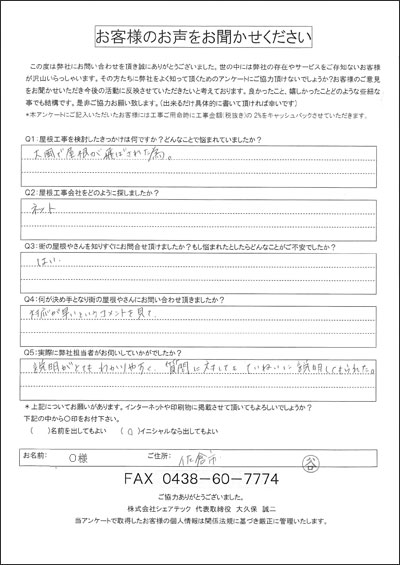 お客様のお声をお聞かせください
この度は弊社にお問い合わせを頂き誠にありがとうございました。世の中には弊社の存在やサービスをご存知ないお客様
が沢山いらっしゃいます。その方たちに弊社をよく知って頂くためのアンケートにご協力頂けないでしょうか?お客様のご意見
をお聞かせいただき今後の活動に反映させていただきたいと考えております。良かったこと、嬉しかったことどのような些細な
事でも結構です。是非ご協力お願い致します。(出来るだけ具体的に書いて頂ければ幸いです)
*本アンケートにご記入いただいたお客様には工事ご用命時に工事金額(税抜き)の2%をキャッシュバックさせていただきます。
Q1:屋根工事を検討したきっかけは何ですか?どんなことで悩まれていましたか?
大風で屋根が飛ばされた為。
Q2:屋根工事会社をどのように探しましたか?
ネット
Q3:街の屋根やさんを知りすぐにお問合せ頂けましたか?もし悩まれたとしたらどんなことがご不安でしたか?
はい.
Q4:何が決め手となり街の屋根やさんにお問い合わせ頂きましたか?
対応が早いというコメントを見て.
Q5:実際に弊社担当者がお伺いしていかがでしたか?
説明がとてもわかりやすく、質問に対しても ていねいに説明してもられた。
*上記についてお願いがあります。インターネットや印刷物に掲載させて頂いてもよろしいでしょうか?
下記の中から〇印をお付下さい。
( )名前を出してもよい (〇)イニシャルなら出してもよい
お名前: O様 ご住所: 佐倉市 谷
FAX 0438-60-7774
ご協力ありがとうございました。
株式会社シェアテック 代表取締役 大久保 誠二
当アンケートで取得したお客様の個人情報は関係法規に基づき厳正に管理いたします。